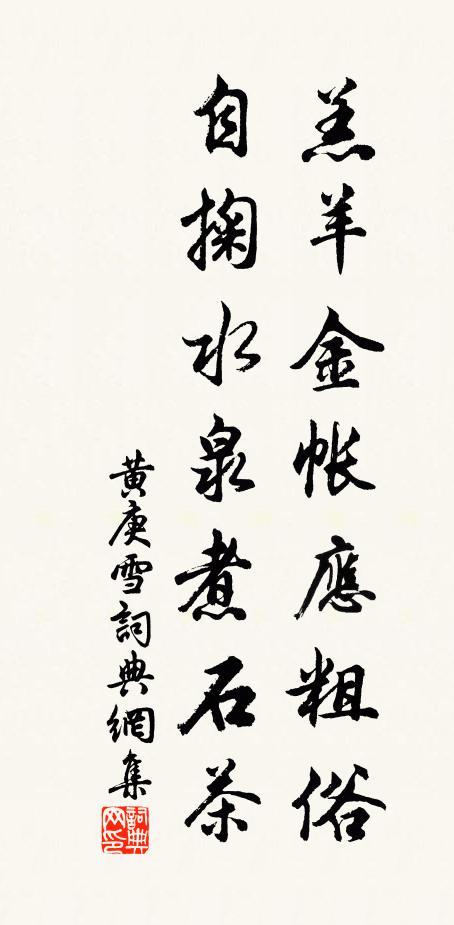 羔羊金帐應粗俗
自掬水泉煮石茶
黄庚雪詞典網集
詞典网印